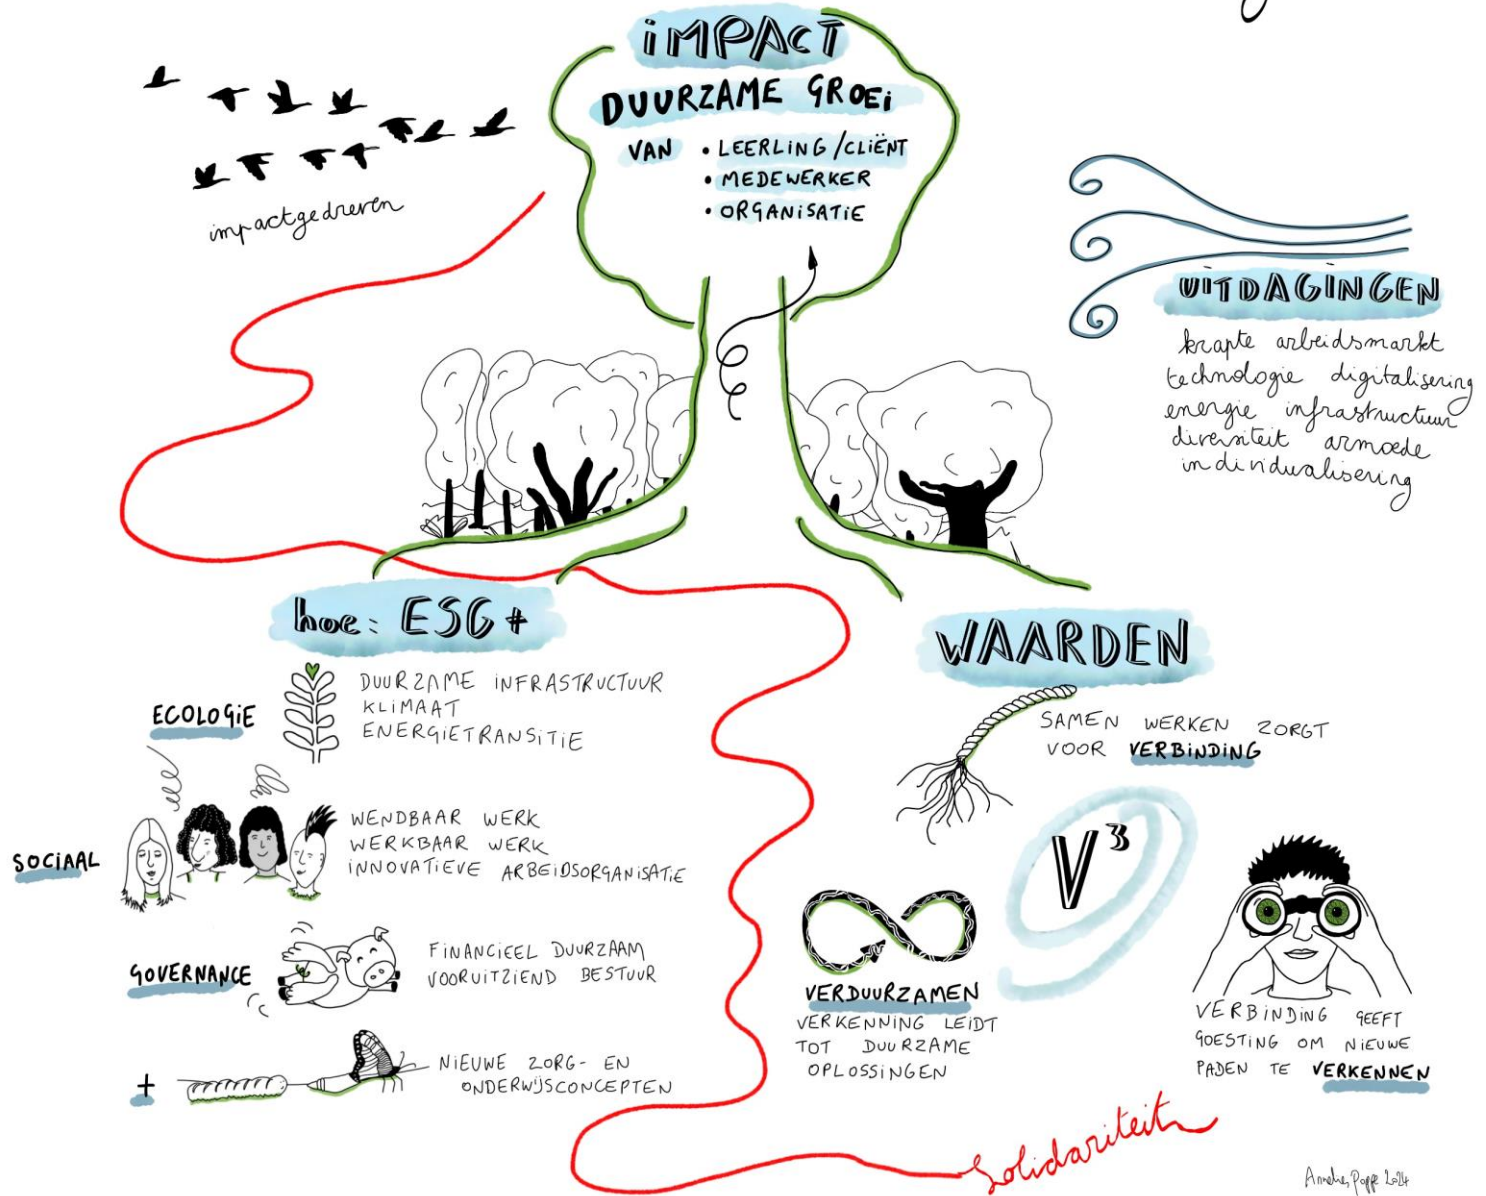 iMPACT
DUURZAME GROEi
VAN • LEERLiNG/CLiËNT
• MEDEWERKER
• ORGANiSATiE
impactgedreven
UiTDAGiNGEN
krapte arbeidsmarkt
technologie digitalisering
energie infrastructuur
diversiteit armoede
individualisering
hoe: ESG+
ECOLOGiE
DUURZAME iNFRASTRUCTUUR
KLiMAAT
ENERGiETRANSiTiE
SOCiAAL
WENDBAAR WERK
WERKBAAR WERK
iNNOVATiEVE ARBEiDSORGANiSATiE
GOVERNANCE
FiNANCiEEL DUURZAAM
VOORUiTZiEND BESTUUR
+
NiEUWE ZORG- EN
ONDERWiJSCONCEPTEN
WAARDEN
SAMEN WERKEN ZORGT
VOOR VERBiNDiNG
V³
VERDUURZAMEN
VERKENNiNG LEiDT
TOT DUURZAME
OPLOSSiNGEN
VERBiNDiNG GEEFT
GOESTiNG OM NiEUWE
PADEN TE VERKENNEN
Solidariteit
2024